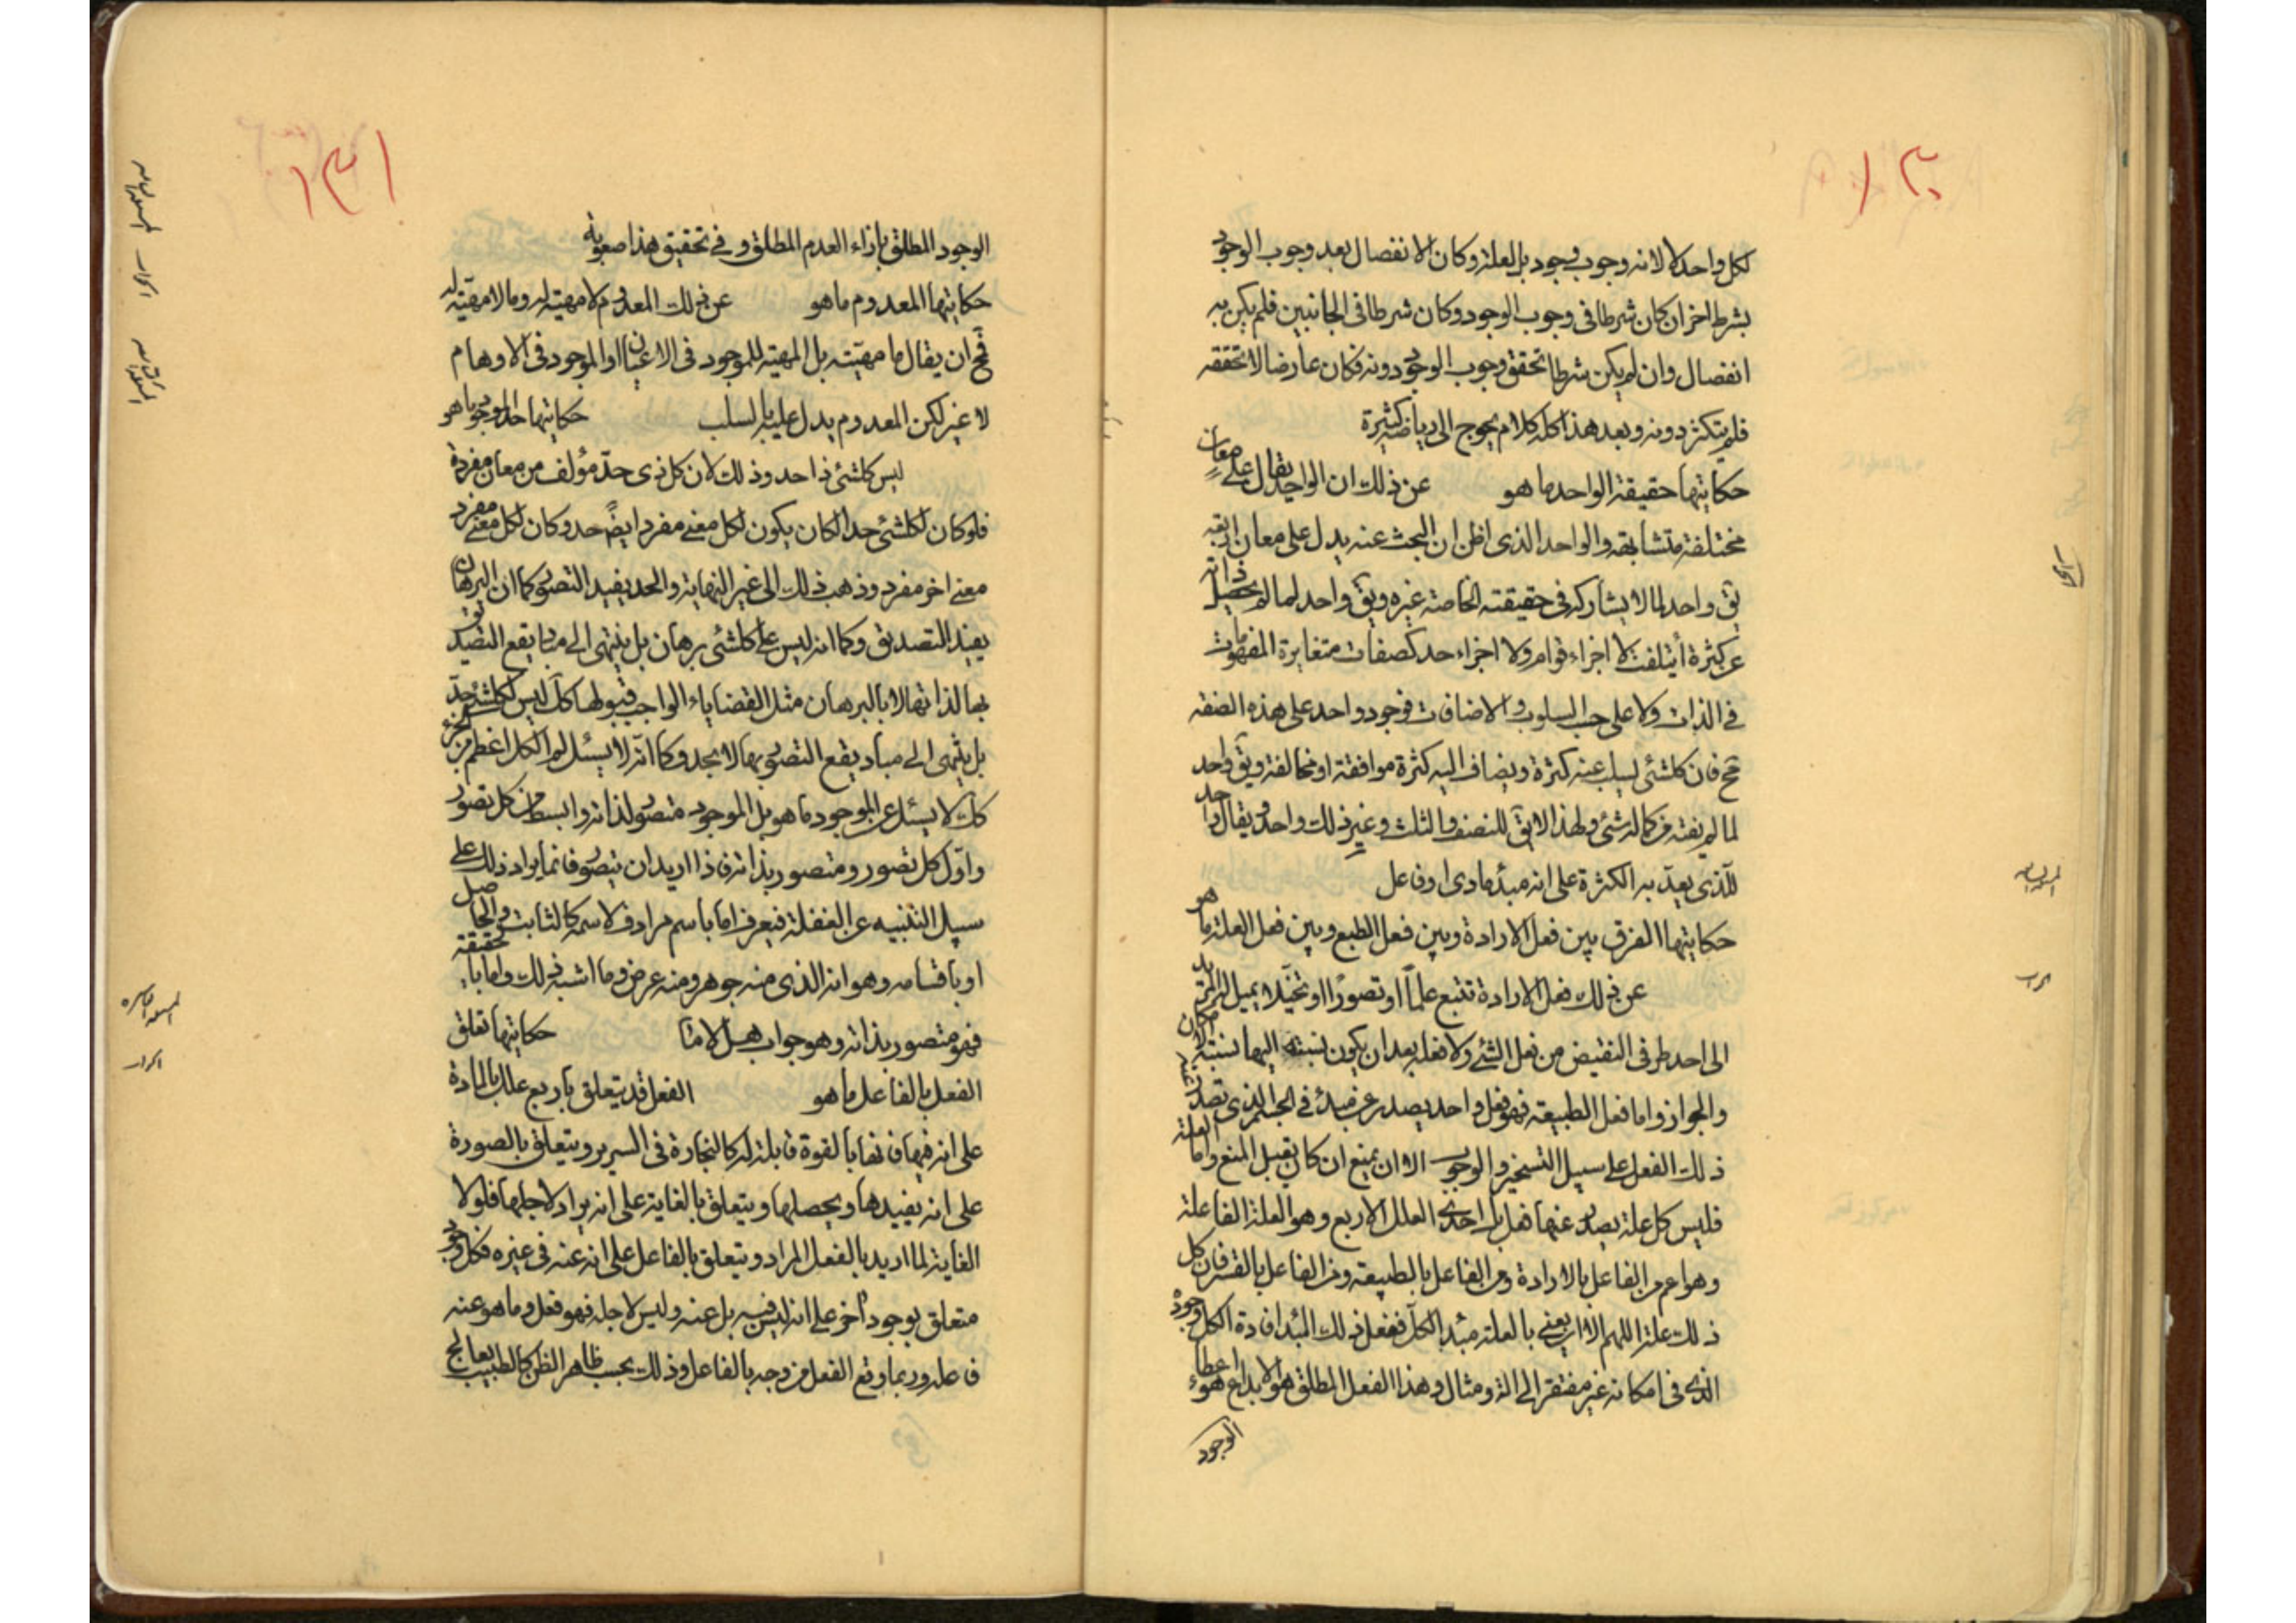 ١٣٠
لكل واحد لا لانه وجوب وجود بل لعلة وكان الانفصال بعد وجوب الوجود
بشرط اخر ان كان شرطا فى وجوب الوجود وكان شرطا فى الجانبين فلم يكن به
انفصال وان لم يكن شرطا تحقق وجوب الوجود دونه فكان عارضا لا تحققه
فلم يتكثر دونه وبعد هذا كله كلام يحوج الى رياضة كثيرة
حكايتها حقيقة الواحد ما هو عن ذلك ان الواحد يقال على معان
مختلفة متشابهة والواحد الذى اظن ان البحث عنه يدل على معان اربعه
يق واحد لما لا يشاركه فى حقيقته الخاصة غيره ويق واحد لما لم يحصل ذاته
عن كثرة أيتلفت لا اجزاء قوام ولا اجزاء حد كصفات متغايرة المفهومات
فى الذات ولا على حسب السلوب والاضافات فوجود واحد على هذه الصفه
مح فان كلشئ يسلب عنه كثرة ويضاف اليه كثرة موافقة او مخالفة ويق واحد
لما لم يفته من كماله شئ ولهذا لا يق للنصف والثلث وغير ذلك واحد ويقال واحد
للذى يعد به الكثرة على انه مبدء مادى او فاعل
حكايتها الفرق بين فعل الارادة وبين فعل الطبع وبين فعل العلة ما هو
عن ذلك فعل الارادة تتبع علماً او تصورًا او تخيّلا يميل المريد
الى احد طرفى النقيض من فعل الشئ ولا فعله بعد ان يكون نسبته اليها نسبة الامكان
والجواز واما فعل الطبيعة فهو فعل واحد يصدر عن مبدء فى الجسم الذى تصدر عنه
ذلك الفعل على سبيل التسخير والوجوب الا ان يمنع ان كان يقبل المنع واما العلة
فليس كل علة يصدر عنها فعل بل احدى العلل الاربع وهو العلة الفاعلة
وهو اعم من الفاعل بالارادة ومن الفاعل بالطبيعة ومن الفاعل بالقسر فان كل
ذلك علة اللهم الا ان يعنى بالعلة مبدء الكل ففعل ذلك المبدء افادة الكل وجوده
الذى فى امكانه غير مفتقر الى الة ومثال وهذا الفعل المطلق هو الابداع هو اعطاء
الوجود
١٣١
الوجود المطلق بازاء العدم المطلق وفى تحقيق هذا صعوبة
حكايتها المعدوم ما هو عن ذلك المعدوم لا مهيته له وما لا مهيّته له
فمح ان يقال ما مهيّته بل المهيّة للموجود فى الاعيان او الموجود فى الاوهام
لا غير لكن المعدوم يدل عليه بالسلب حكايتها حد الموجود ما هو
ليس كلشئ ذا حد وذلك لان كل ذى حدّ مؤلف من معان مفردة
فلو كان لكلشئ حد الكان يكون لكل معنى مفرد ايضً حد وكان لكل معنى مفرد
معنى اخر مفرد وذهب ذلك الى غير النهاية والحد يفيد التصور كما ان البرهان
يفيد التصديق وكما انه ليس على كلشئ برهان بل ينتهى الى مباد يقع التصديق
بها لذاتها لا بالبرهان مثل القضاياء الواجب قبولها كك ليس لكلشئ حدّ
بل ينتهى الى مباد يقع التصور بها لا بحد وكما انّه لا يسئل لم الكل اعظم من الجزء
كك لا يسئل عن الموجود ما هو بل الموجود متصور لذاته وابسط من كل تصور
واوّل كل تصور ومتصور بذاته فاذا اريد ان يتصور فانما يراد ذلك على
سبيل التنبيه عن الغفلة فيعرف اما باسم مرادف لاسمه كالثابت والحاصل
او باقسامه وهو انه الذى منه جوهر ومنه عرض وما اشبه ذلك واما باء حقيقة
فهو متصور بذاته وهو جواب هل لا ما حكايتها تعلق
الفعل بالفاعل ما هو الفعل قد يتعلق باربع علل بالمادة
على انه فيها فانها بالقوة قابلة له كالنجارة فى السرير ويتعلق بالصورة
على انه يفيدها ويحصلها ويتعلق بالغاية على انه يراد لاجلها فلولا
الغاية لما اريد بالفعل المراد ويتعلق بالفاعل على انه عنه فى غيره فكل وجود
متعلق بوجود اخر على انه ليس فيه بل عنه وليس لاجله فهو فعل وما هو عنه
فاعله وربما وقع الفعل من وجه بالفاعل وذلك بحسب ظاهر الظن كالطبيب يعالج